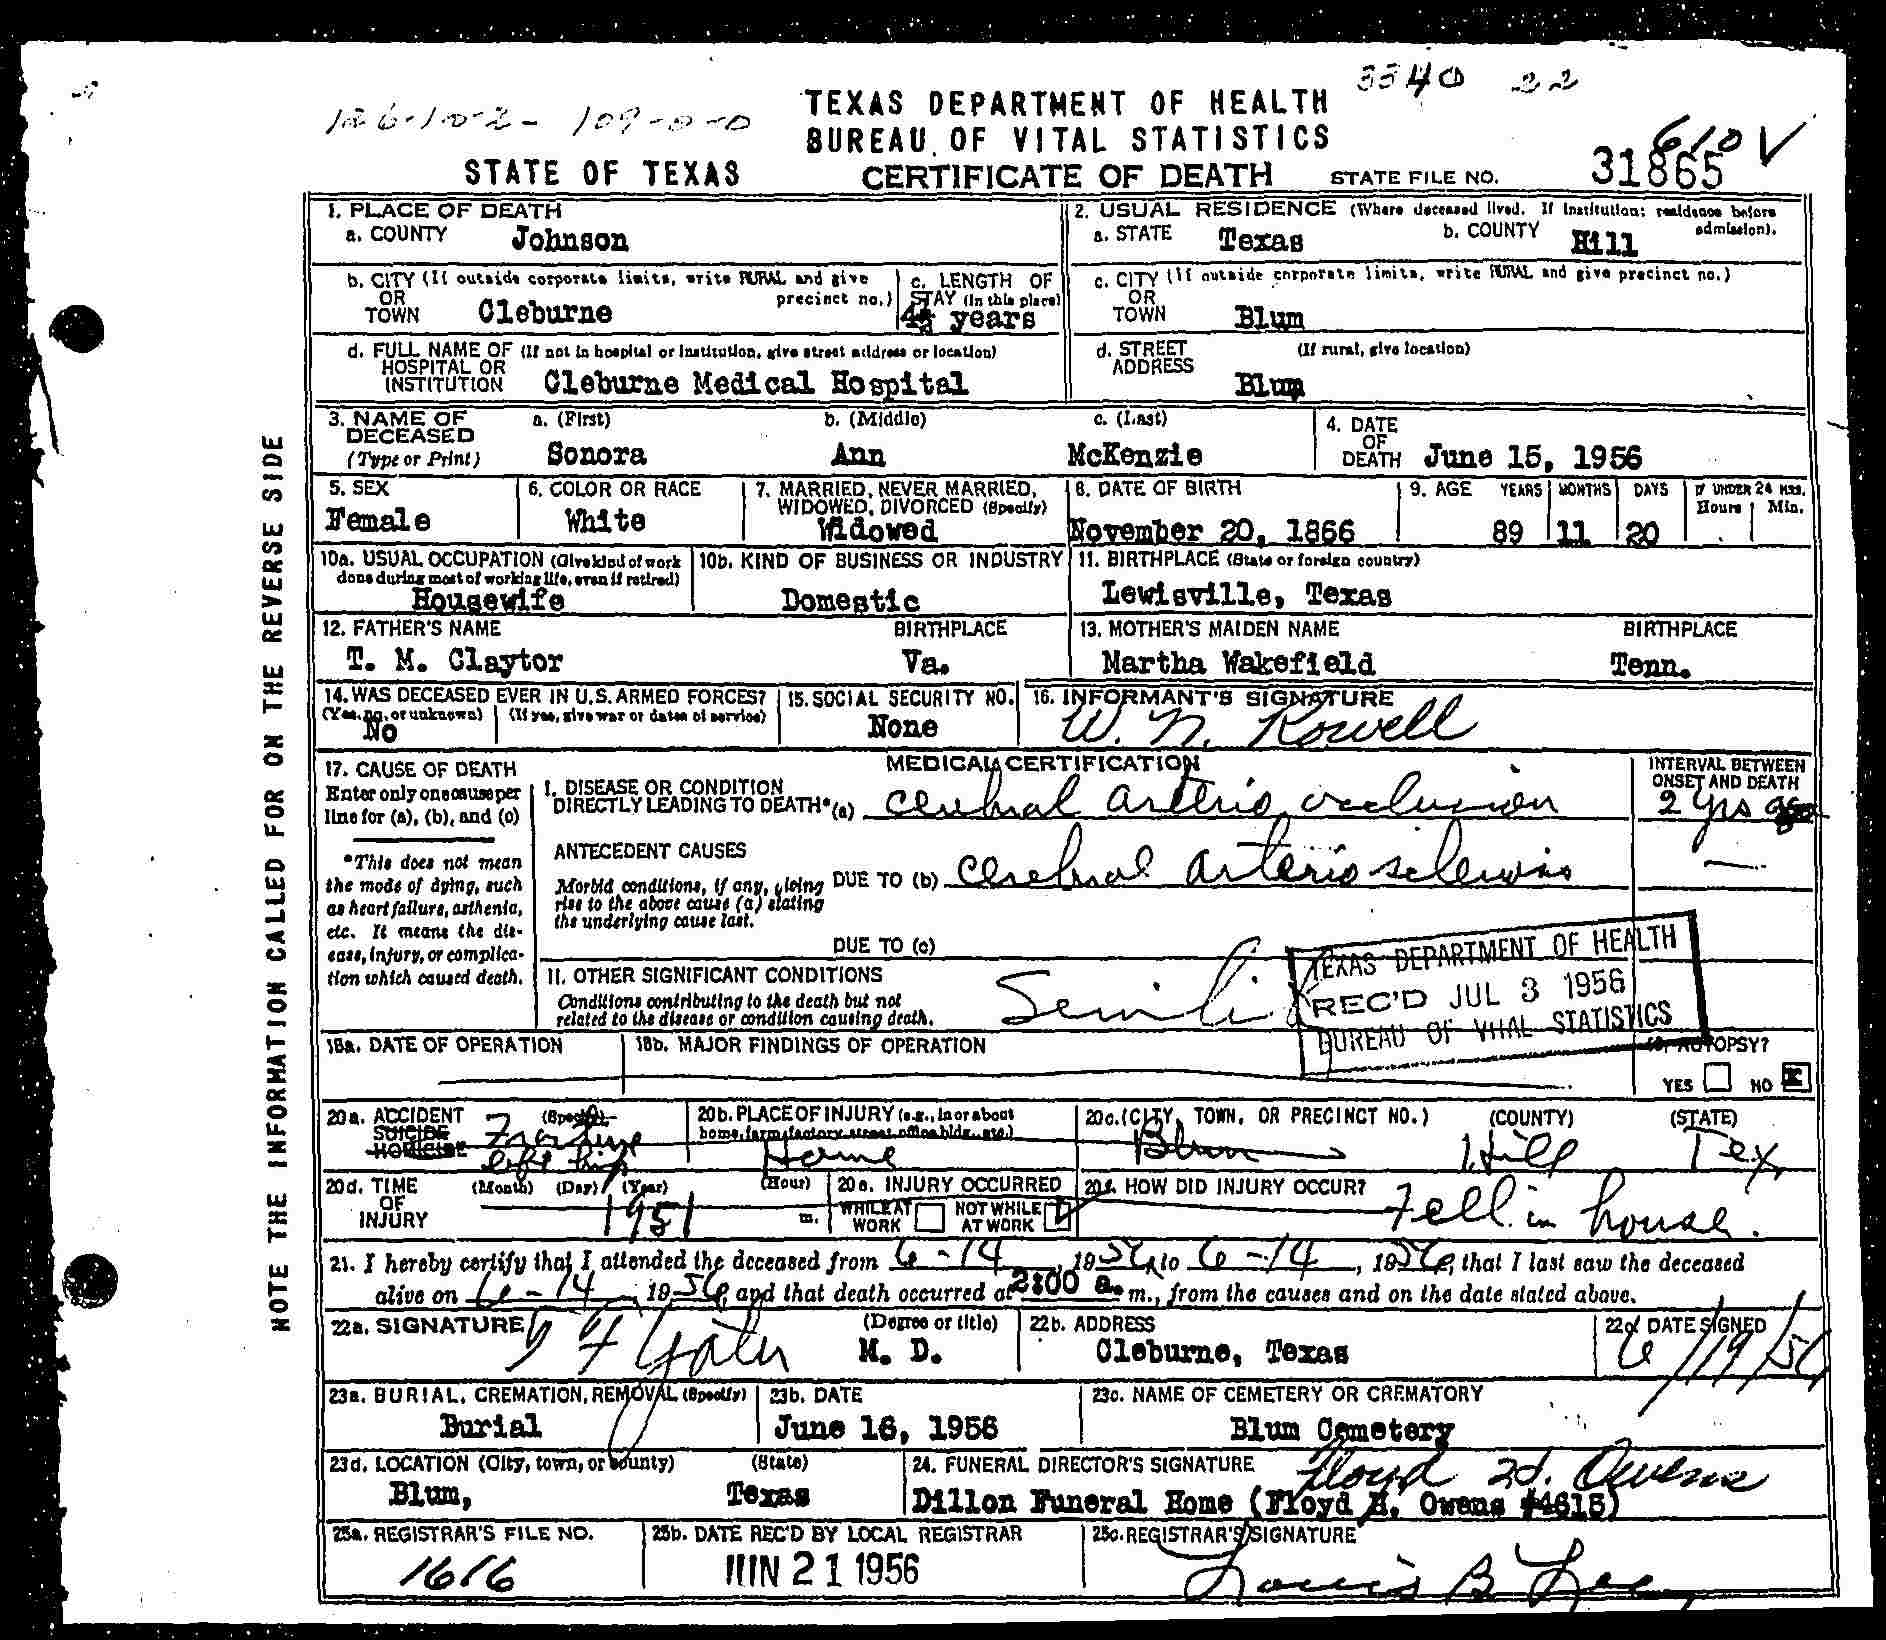 3340 22
126-10-2- 109-0-0
TEXAS DEPARTMENT OF HEALTH
BUREAU OF VITAL STATISTICS
610 V
STATE OF TEXAS CERTIFICATE OF DEATH STATE FILE NO. 31865
NOTE THE INFORMATION CALLED FOR ON THE REVERSE SIDE
1. PLACE OF DEATH
a. COUNTY Johnson
2. USUAL RESIDENCE (Where deceased lived. If institution: residence before admission).
a. STATE Texas b. COUNTY Hill
b. CITY (If outside corporate limits, write RURAL and give precinct no.)
OR
TOWN Cleburne
c. LENGTH OF
STAY (In this place)
years
c. CITY (If outside corporate limits, write RURAL and give precinct no.)
OR
TOWN Blum
d. FULL NAME OF (If not in hospital or institution, give street address or location)
HOSPITAL OR
INSTITUTION Cleburne Medical Hospital
d. STREET (If rural, give location)
ADDRESS
Blum
3. NAME OF DECEASED (Type or Print)
a. (First) b. (Middle) c. (Last)
Sonora Ann McKenzie
4. DATE OF DEATH June 15, 1956
5. SEX
Female
6. COLOR OR RACE
White
7. MARRIED, NEVER MARRIED,
WIDOWED, DIVORCED (Specify)
Widowed
8. DATE OF BIRTH
November 20, 1866
9. AGE YEARS MONTHS DAYS IF UNDER 24 HRS.
Hours Min.
89 11 20
10a. USUAL OCCUPATION (Give kind of work
done during most of working life, even if retired)
Housewife
10b. KIND OF BUSINESS OR INDUSTRY
Domestic
11. BIRTHPLACE (State or foreign country)
Lewisville, Texas
12. FATHER'S NAME BIRTHPLACE
T. M. Claytor Va.
13. MOTHER'S MAIDEN NAME BIRTHPLACE
Martha Wakefield Tenn.
14. WAS DECEASED EVER IN U.S. ARMED FORCES?
(Yes, no, or unknown) (If yes, give war or dates of service)
No
15. SOCIAL SECURITY NO.
None
16. INFORMANT'S SIGNATURE
W. N. Rowell
MEDICAL CERTIFICATION
17. CAUSE OF DEATH
Enter only one cause per
line for (a), (b), and (c)
*This does not mean
the mode of dying, such
as heart failure, asthenia,
etc. It means the dis-
ease, injury, or complica-
tion which caused death.
I. DISEASE OR CONDITION
DIRECTLY LEADING TO DEATH* (a) cerebral arterio occlusion
INTERVAL BETWEEN
ONSET AND DEATH
2 yrs
ANTECEDENT CAUSES
Morbid conditions, if any, giving
rise to the above cause (a) stating
the underlying cause last.
DUE TO (b) cerebral arterio sclerosis
DUE TO (c)
II. OTHER SIGNIFICANT CONDITIONS
Conditions contributing to the death but not
related to the disease or condition causing death.
TEXAS DEPARTMENT OF HEALTH
REC'D JUL 3 1956
BUREAU OF VITAL STATISTICS
18a. DATE OF OPERATION
18b. MAJOR FINDINGS OF OPERATION
19. AUTOPSY?
YES NO X
20a. ACCIDENT (Specify)
SUICIDE
HOMICIDE
Fracture
left hip
20b. PLACE OF INJURY (e.g., in or about
home, farm, factory, street, office bldg., etc.)
Home
20c. (CITY, TOWN, OR PRECINCT NO.) (COUNTY) (STATE)
Blum Hill Tex
20d. TIME OF INJURY
(Month) (Day) (Year) (Hour)
1951 m.
20e. INJURY OCCURRED
WHILE AT WORK NOT WHILE AT WORK
20f. HOW DID INJURY OCCUR?
Fell in house.
21. I hereby certify that I attended the deceased from 6-14, 1956, to 6-14, 1956, that I last saw the deceased
alive on 6-14, 1956, and that death occurred at 2:00 a. m., from the causes and on the date stated above.
22a. SIGNATURE (Degree or title)
Yater M. D.
22b. ADDRESS
Cleburne, Texas
22c. DATE SIGNED
6/19/56
23a. BURIAL, CREMATION, REMOVAL (Specify)
Burial
23b. DATE
June 16, 1956
23c. NAME OF CEMETERY OR CREMATORY
Blum Cemetery
23d. LOCATION (City, town, or county) (State)
Blum, Texas
24. FUNERAL DIRECTOR'S SIGNATURE Floyd H. Owens
Dillon Funeral Home (Floyd H. Owens #4615)
25a. REGISTRAR'S FILE NO.
1616
25b. DATE REC'D BY LOCAL REGISTRAR
JUN 21 1956
25c. REGISTRAR'S SIGNATURE
Louis B Lee